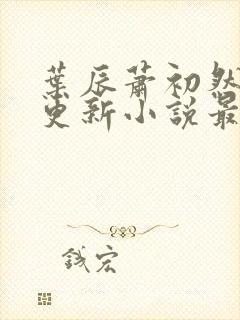 葉辰蕭初然
更新小說最
錢宏